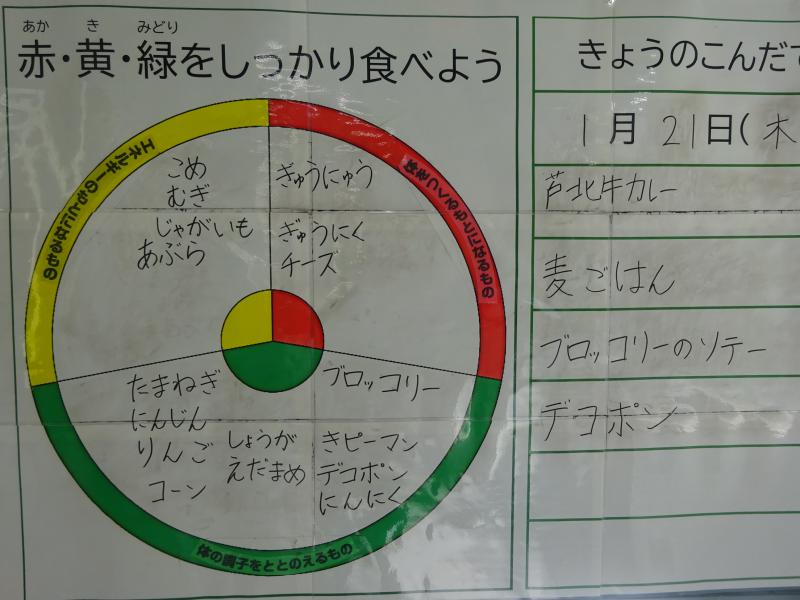 あか き みどり
赤・黄・緑をしっかり食べよう
エネルギーのもとになるもの
こめ
むぎ
じゃがいも
あぶら
体をつくるもとになるもの
ぎゅうにゅう
ぎゅうにく
チーズ
たまねぎ
にんじん
りんご
コーン
しょうが
えだまめ
ブロッコリー
きピーマン
デコポン
にんにく
体の調子をととのえるもの
きょうのこんだて
1月21日(木
芦北牛カレー
麦ごはん
ブロッコリーのソテー
デコポン